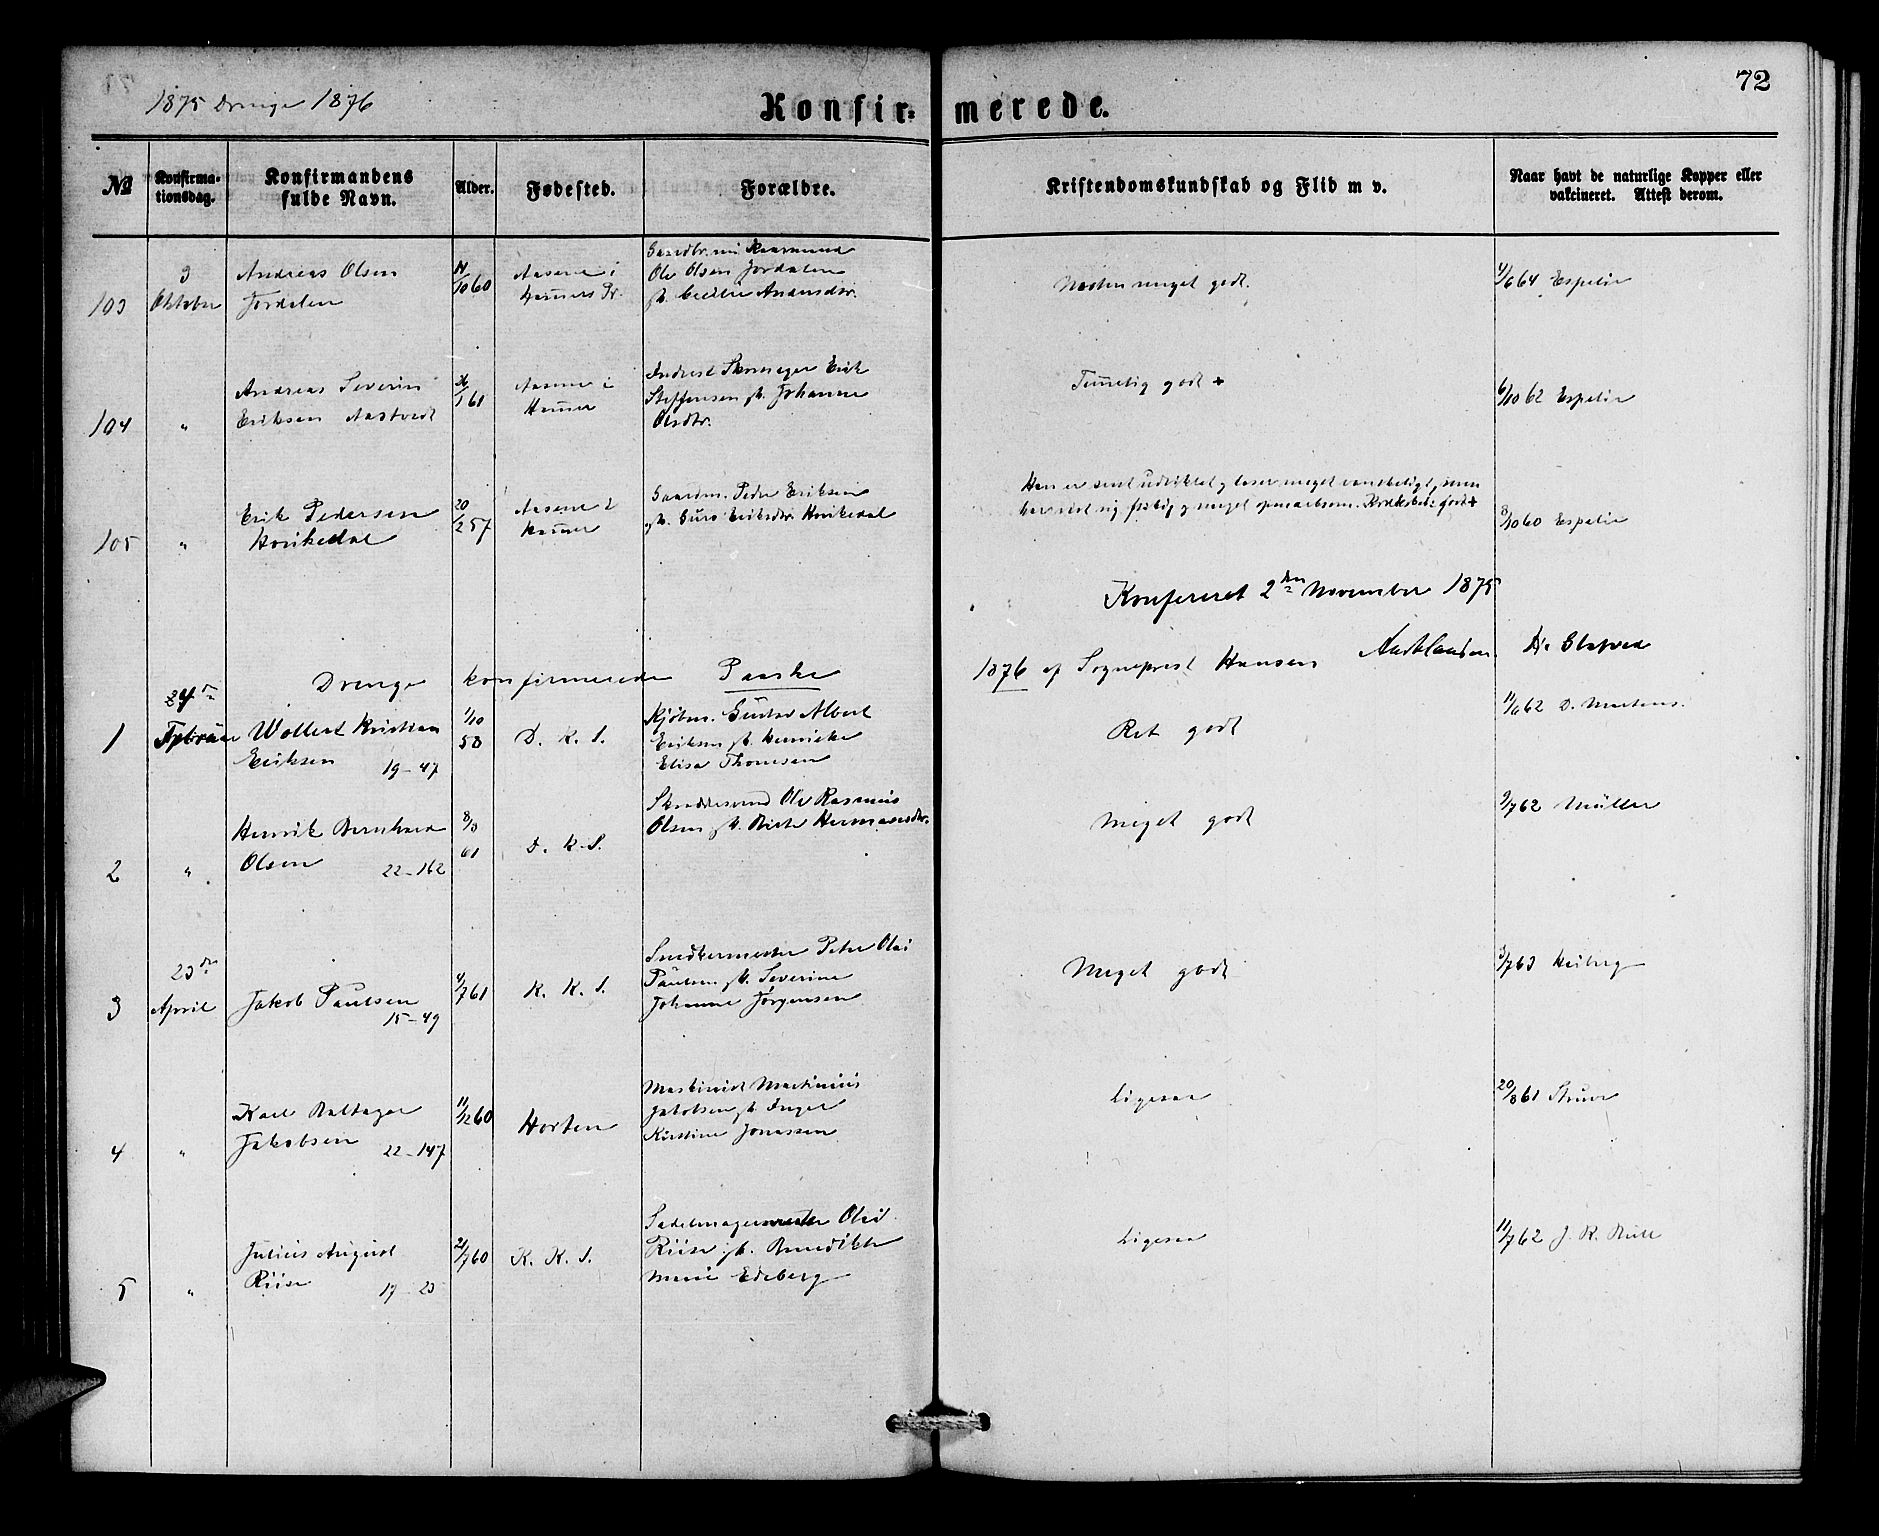 72
1875 Drenge 1876
Konfir- merede.
No
Konfirma-
tionsdag.
Konfirmandens
fulde Navn.
Alder.
Fødested.
Forældre.
Kristendomskundskab og Flid m v.
Naar havt de naturlige Kopper eller
vakcineret. Attest derom.
103
3
Oktober
Andreas Olsen
Jordalen
10 60
Aasene i
Hammers Pr.
Ole Olsen Jordalen
Andersdtr.
Næsten meget godt.
4/6 64 Espelie
104
"
Andreas Severin
Eriksen Aastvedt
1 61
Aasene i
Hammer
Erik
Steffensen Johanne
Olsdtr.
Temmelig godt +
6/10 62 Espelie
105
"
Erik Pedersen
Hovikedal
20
2 57
Aasene i
Hammer
Gaardm. Peder Eriksen
Guro Eriksdtr. Hovikedal
Han er sent udviklet, læser meget vanskeligt, men
har vist sig flittig og meget opmærksom.
8/10 60 Espelie
Konfereret 2den November 1875
Drenge konfirmerede Paaske 1876 af Sogneprest Hansen
1
Februar
Wollert Kristian
Eriksen 19-47
1/10
58
D. K. S.
Kjøbm. Gustav Albert
Eriksen
Elisa Thomsen
Ret godt
11/6 62 D. Martens.
2
"
Henrik Bernhard
Olsen 22-162
8/3
61
D. K. S.
Ole Rasmus
Olsen Hermansdtr.
Meget godt
9/7 62 Müller
3
23de
April
Jakob Paulsen
15-49
4/7 61
K. K. S.
Snedkermester Peter Olai
Paulsen Severine
Johanne Jørgensen
Meget godt
3/7 63 Heiberg
4
"
Karl Baltazar
Jakobsen 22-147
11/12 60
Horten
Maskinist Martinius
Jakobsen Inger
Kirstine Jonassen
Ligesaa
20/8 61
5
"
Julius August
Riise 19-25
21/7 60
K. K. S.
Sadelmagermester Olai
Riise Benedikte
Marie Edeberg
Ligesaa
11/7 62 J. R. Bull